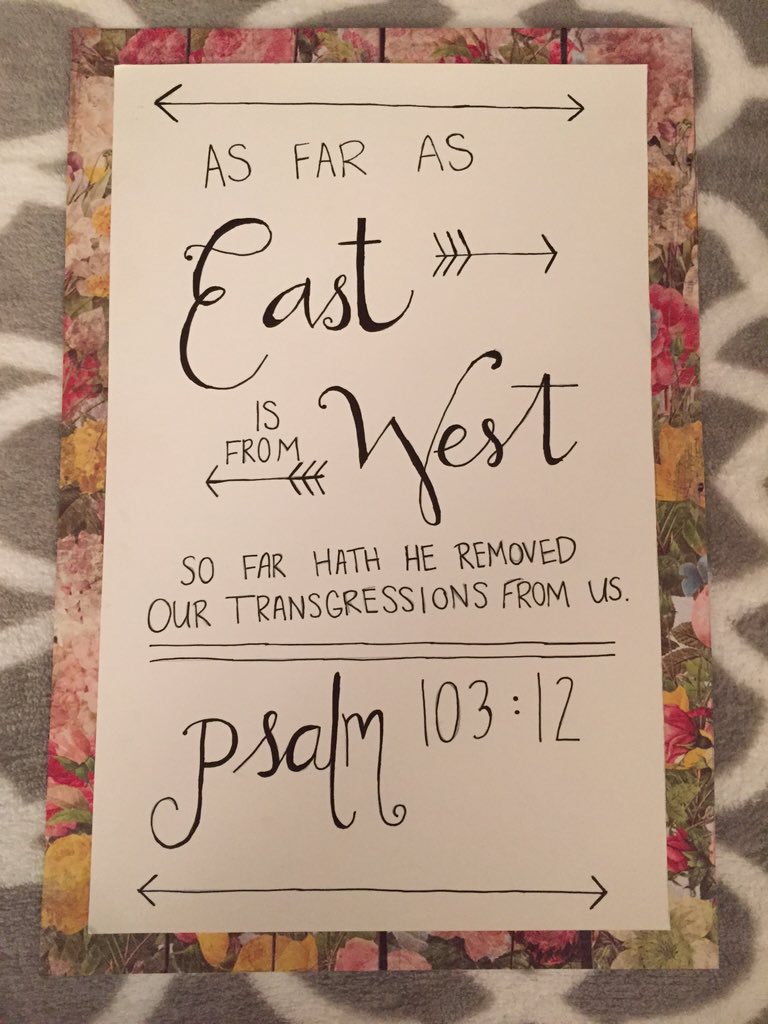 AS FAR AS
East
IS
FROM West
SO FAR HATH HE REMOVED
OUR TRANSGRESSIONS FROM US.
psalm 103:12